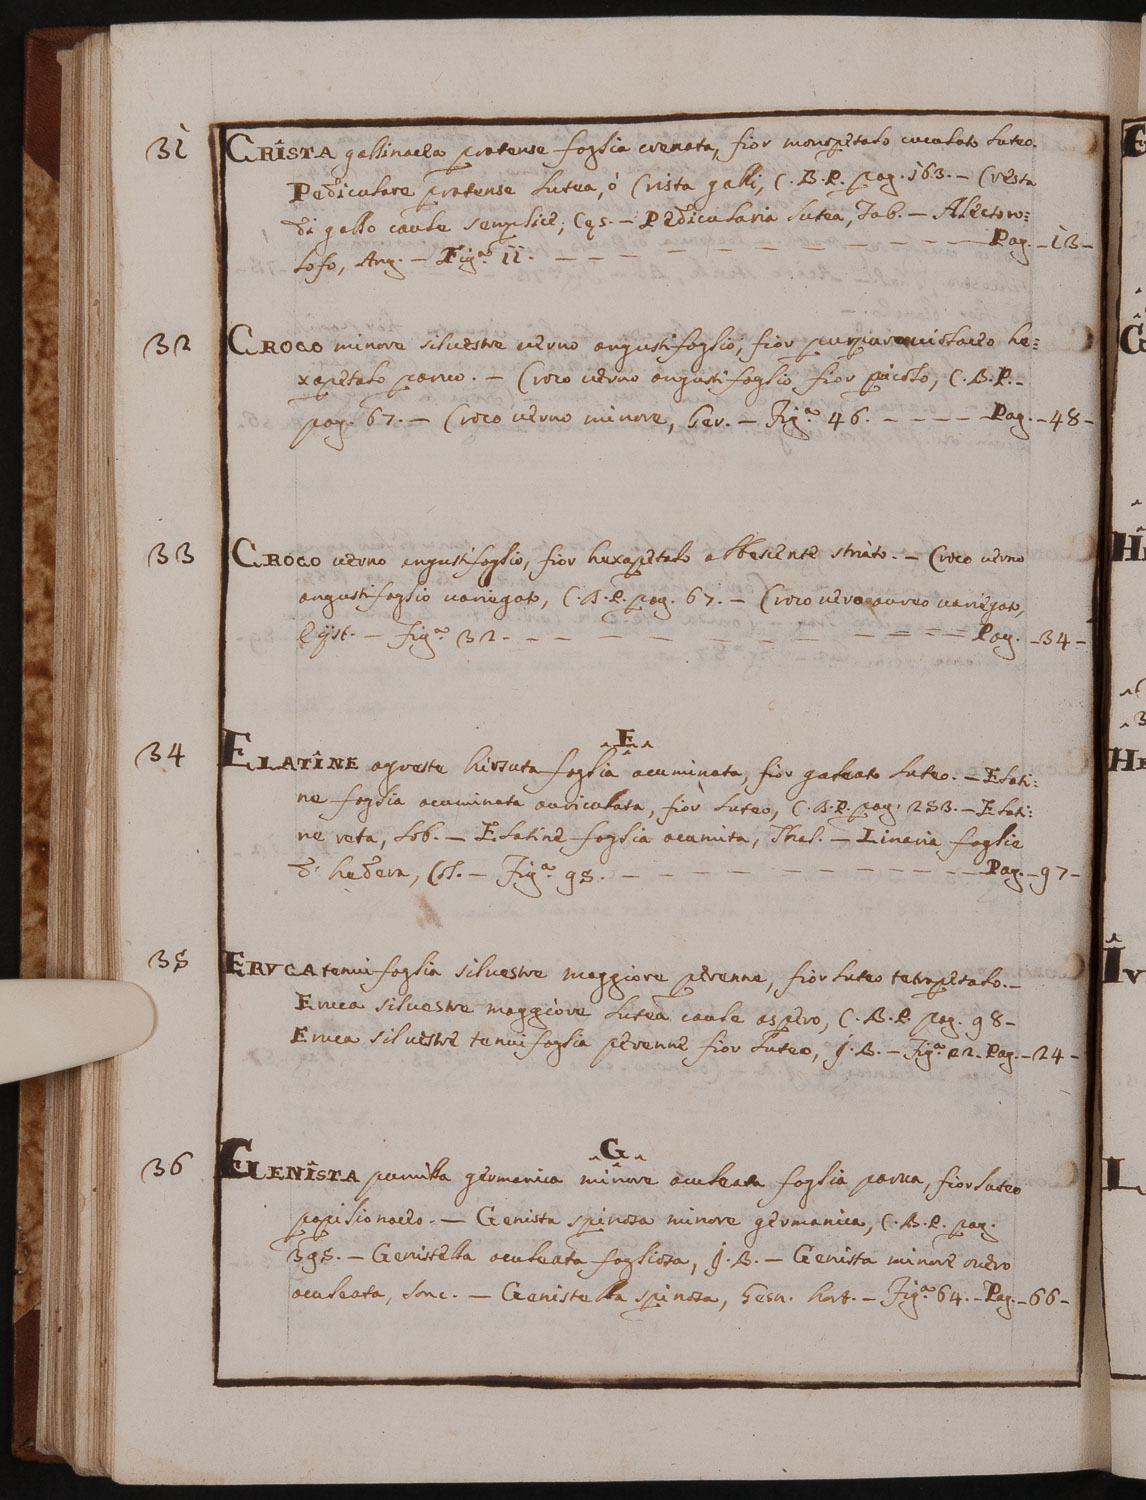 31 CRÎSTA gallinacea pratense foglia crenata, fior monopetalo cuculato luteo.
Pediculare pratense lutea, ò Crista galli, C.B.P. pag. 163. — Cresta
di gallo caule semplice, Ces. — Pedicularia lutea, Tab. — Alectoro=
lofo, Ang. — Fig.ᵃ 11. — — — — — — — — — Pag. — 13 —
32 CROCO minore siluestre uerno angustifoglio, fior purpureouiolaceo he=
xapetalo paruo. — Croco uerno angustifoglio fior picolo, C.B.P. —
pag. 67. — Croco uerno minore, Ger. — Fig.ᵃ 46. — — — — Pag. — 48 —
33 CROCO uerno angustifoglio, fior hexapetalo albescente striato. — Croco uerno
angustifoglio uariegato, C.B.P. pag. 67. — Croco uero aureo uariegato,
Eyst. — fig.ᵃ 32. — — — — — — — — — Pag. — 34 —
^E^
34 ELATÎNE agreste hirsuta foglia acuminata, fior galeato luteo. — Elati=
ne foglia acuminata auriculata, fior luteo, C.B.P. pag. 253. — Elati=
ne reta, Lob. — Elatine foglia acumita, Thal. — Linaria foglie
d' hedera, Col. — Fig.ᵃ 95. — — — — — — — — — Pag. — 97 —
35 ERVCA tenuifoglia siluestre maggiore perenne, fior luteo tetrapetalo. —
Eruca siluestre maggiore lutea caule aspero, C.B.P. pag. 98 —
Eruca siluestre tenuifoglia perenne fior luteo, J.B. — Fig.ᵃ 22. Pag. — 24 —
^G^
36 GENÎSTA pumilla germanica minore aculeata foglia parua, fior luteo
papilionaceo. — Genista spinosa minore germanica, C.B.P. pag.
395. — Genistella aculeata fogliosa, J.B. — Genista minore ouero
aculeata, Lonc. — Genistella spinosa, Gesn. hort. — Fig.ᵃ 64. — Pag. — 66 —